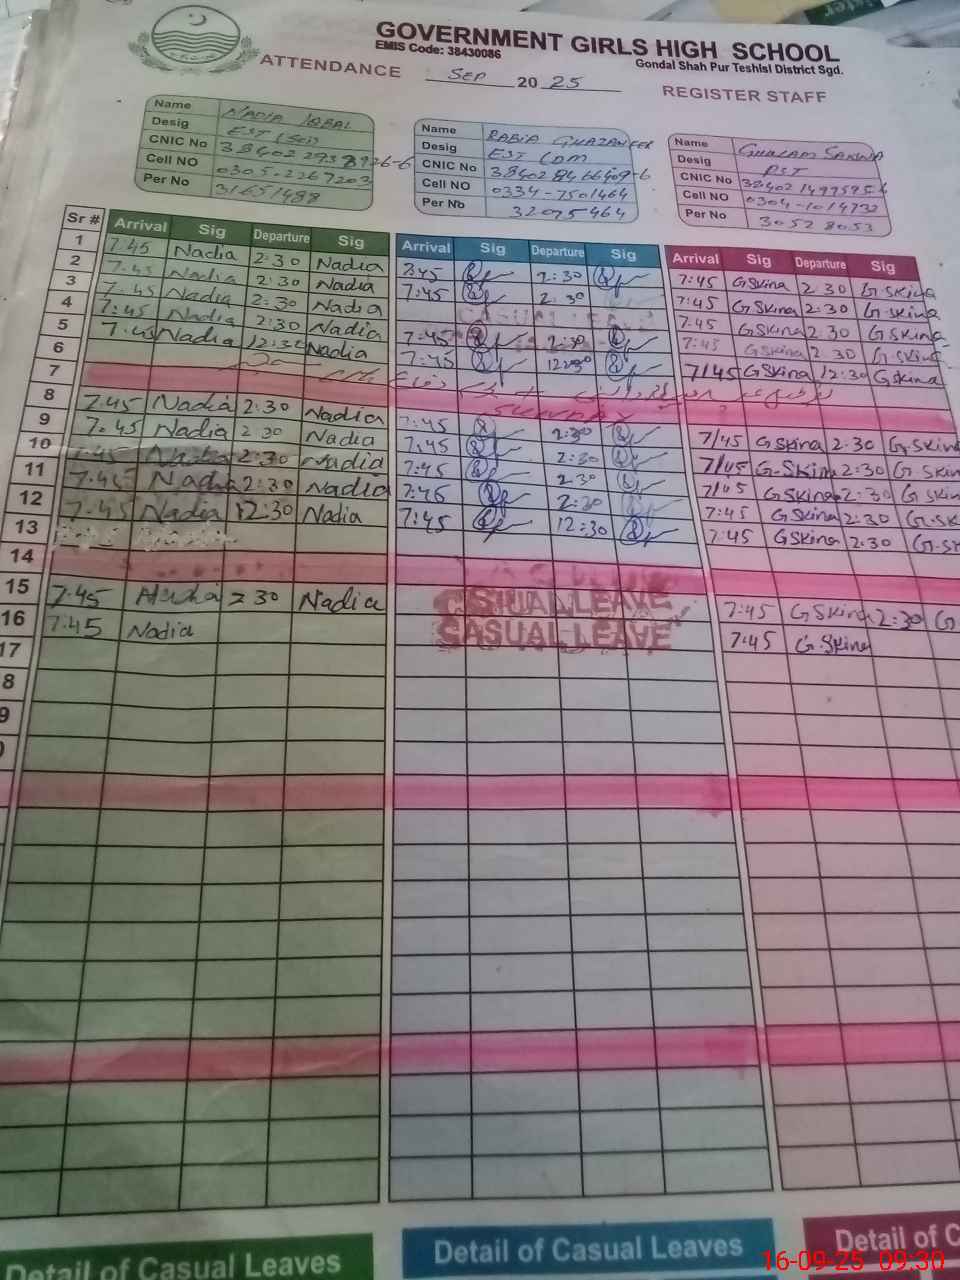 GOVERNMENT GIRLS HIGH SCHOOL
EMIS Code: 38430086
Gondal Shah Pur Teshisl District Sgd.
ATTENDANCE SEP 20 25 REGISTER STAFF
Name NADIA IQBAL
Desig EST (Sci)
CNIC No
Cell NO 0305-2267203
Per No 31651488
Name RABIA GHAZANFER
Desig EST (DM
CNIC No 38402 8466409-6
Cell NO 0334-7501464
Per No 32075464
Name GHULAM SAKINA
Desig PST
CNIC No
Cell NO 0304-1014732
Per No 30528053
Sr # Arrival Sig Departure Sig Arrival Sig Departure Sig Arrival Sig Departure Sig
1 7.45 Nadia 2:30 Nadia 7:45 2:30 7:45 GSkina 2 30 G.skina
2 7:45 Nadia 2:30 Nadia 7:45 2:30 7:45 GSkina 2:30 G.skina
3 7:45 Nadia 2:30 Nadia CASUAL LEAVE 7:45 GSkina 2:30 GSkina
4 7:45 Nadia 2:30 Nadia 7:45 2:30 7:45 GSkina 2 30 G.skina
5 7:45 Nadia 12:30 Nadia 7:45 12:30 7/45 GSkina 12:30 Gskina
6
7 SUNDAY
8 7.45 Nadia 2:30 Nadia 7:45 2:30 7/45 GSkina 2:30 G.Skin
9 7.45 Nadia 2 30 Nadia 7:45 2:30 7/45 G.Skin 2:30 G Skin
10 7:45 Nadia 2:30 Nadia 7:45 2 30 7/45 GSkina 2:30 G Skin
11 7:45 Nadia 2:30 Nadia 7:45 2:30 7:45 GSkina 2:30 G.sk
12 7.45 Nadia 12:30 Nadia 7:45 12:30 7:45 GSkina 2:30 G.sk
13
14
15 7:45 Nadia 2 30 Nadia CASUAL LEAVE 7:45 GSkina 2:30 G
16 7:45 Nadia CASUAL LEAVE 7:45 G.Skina
17
8
9
Detail of Casual Leaves Detail of Casual Leaves Detail of C
16-09-25 09:30